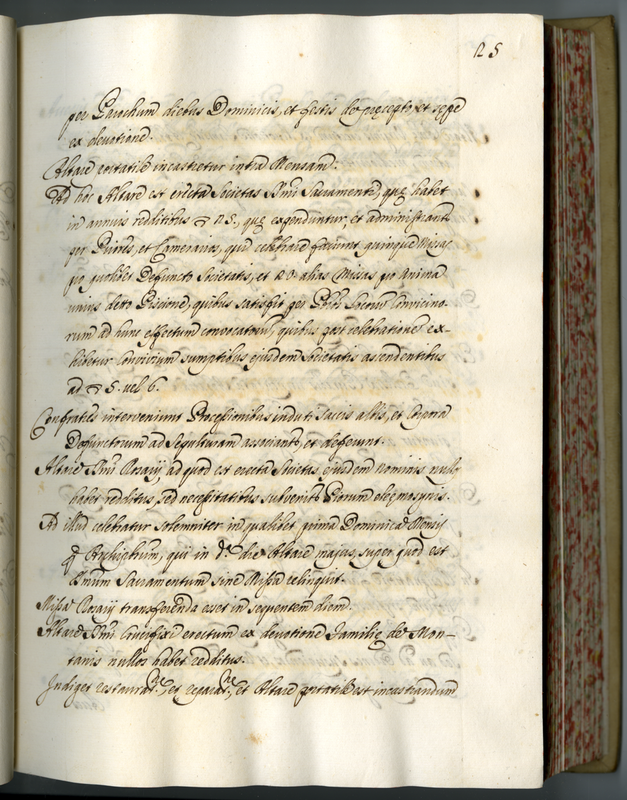 125
per Parochum diebus Dominicis, et festis de precepto, et sępe
ex devotione.
Altare portatile incastretur intra Mensam.
Ad hoc Altare est erecta Societas SSmi Sacramenti, quę habet
in annuis redditibus 25., quę expenduntur, et administrant
per Priores, et Camerarios, qui celebrare faciunt quinque Missas
pro quolibet Defuncto Societatis, et 20 alias Missas pro Anima
unius detto Piscione, quibus satisfit per Pres Locor Convicino-
rum ad hunc effectum convocatorum, quibus post celebratione ex-
hibetur Convivium sumptibus ejusdem Societatis ascendentibus
ad 5. vel 6.
Confratres interveniunt Processionibus induti saccis albis, et Corpora
Defunctorum ad Sepulturam associant, et deferunt.
Altare SSmi Rosarij, ad quod est erecta Societas ejusdem nominis null
habet redditus, sed necessitatibus subvenit Piorum eleęmosynis.
Ad illud celebratur solemniter in qualibet prima Dominica Mensis
Archiprbrum, qui in da die Altare majus, super quod est
SSmum Sacramentum sine Missa relinquit.
Missa Rosarij transferenda esset in sequentem diem.
Altare SSmi Crucifixi erectum ex devotione Familię de Mon-
tanis nullos habet redditus.
Indiget restauratne, et reparatne, et Altare portatile est incastrandum